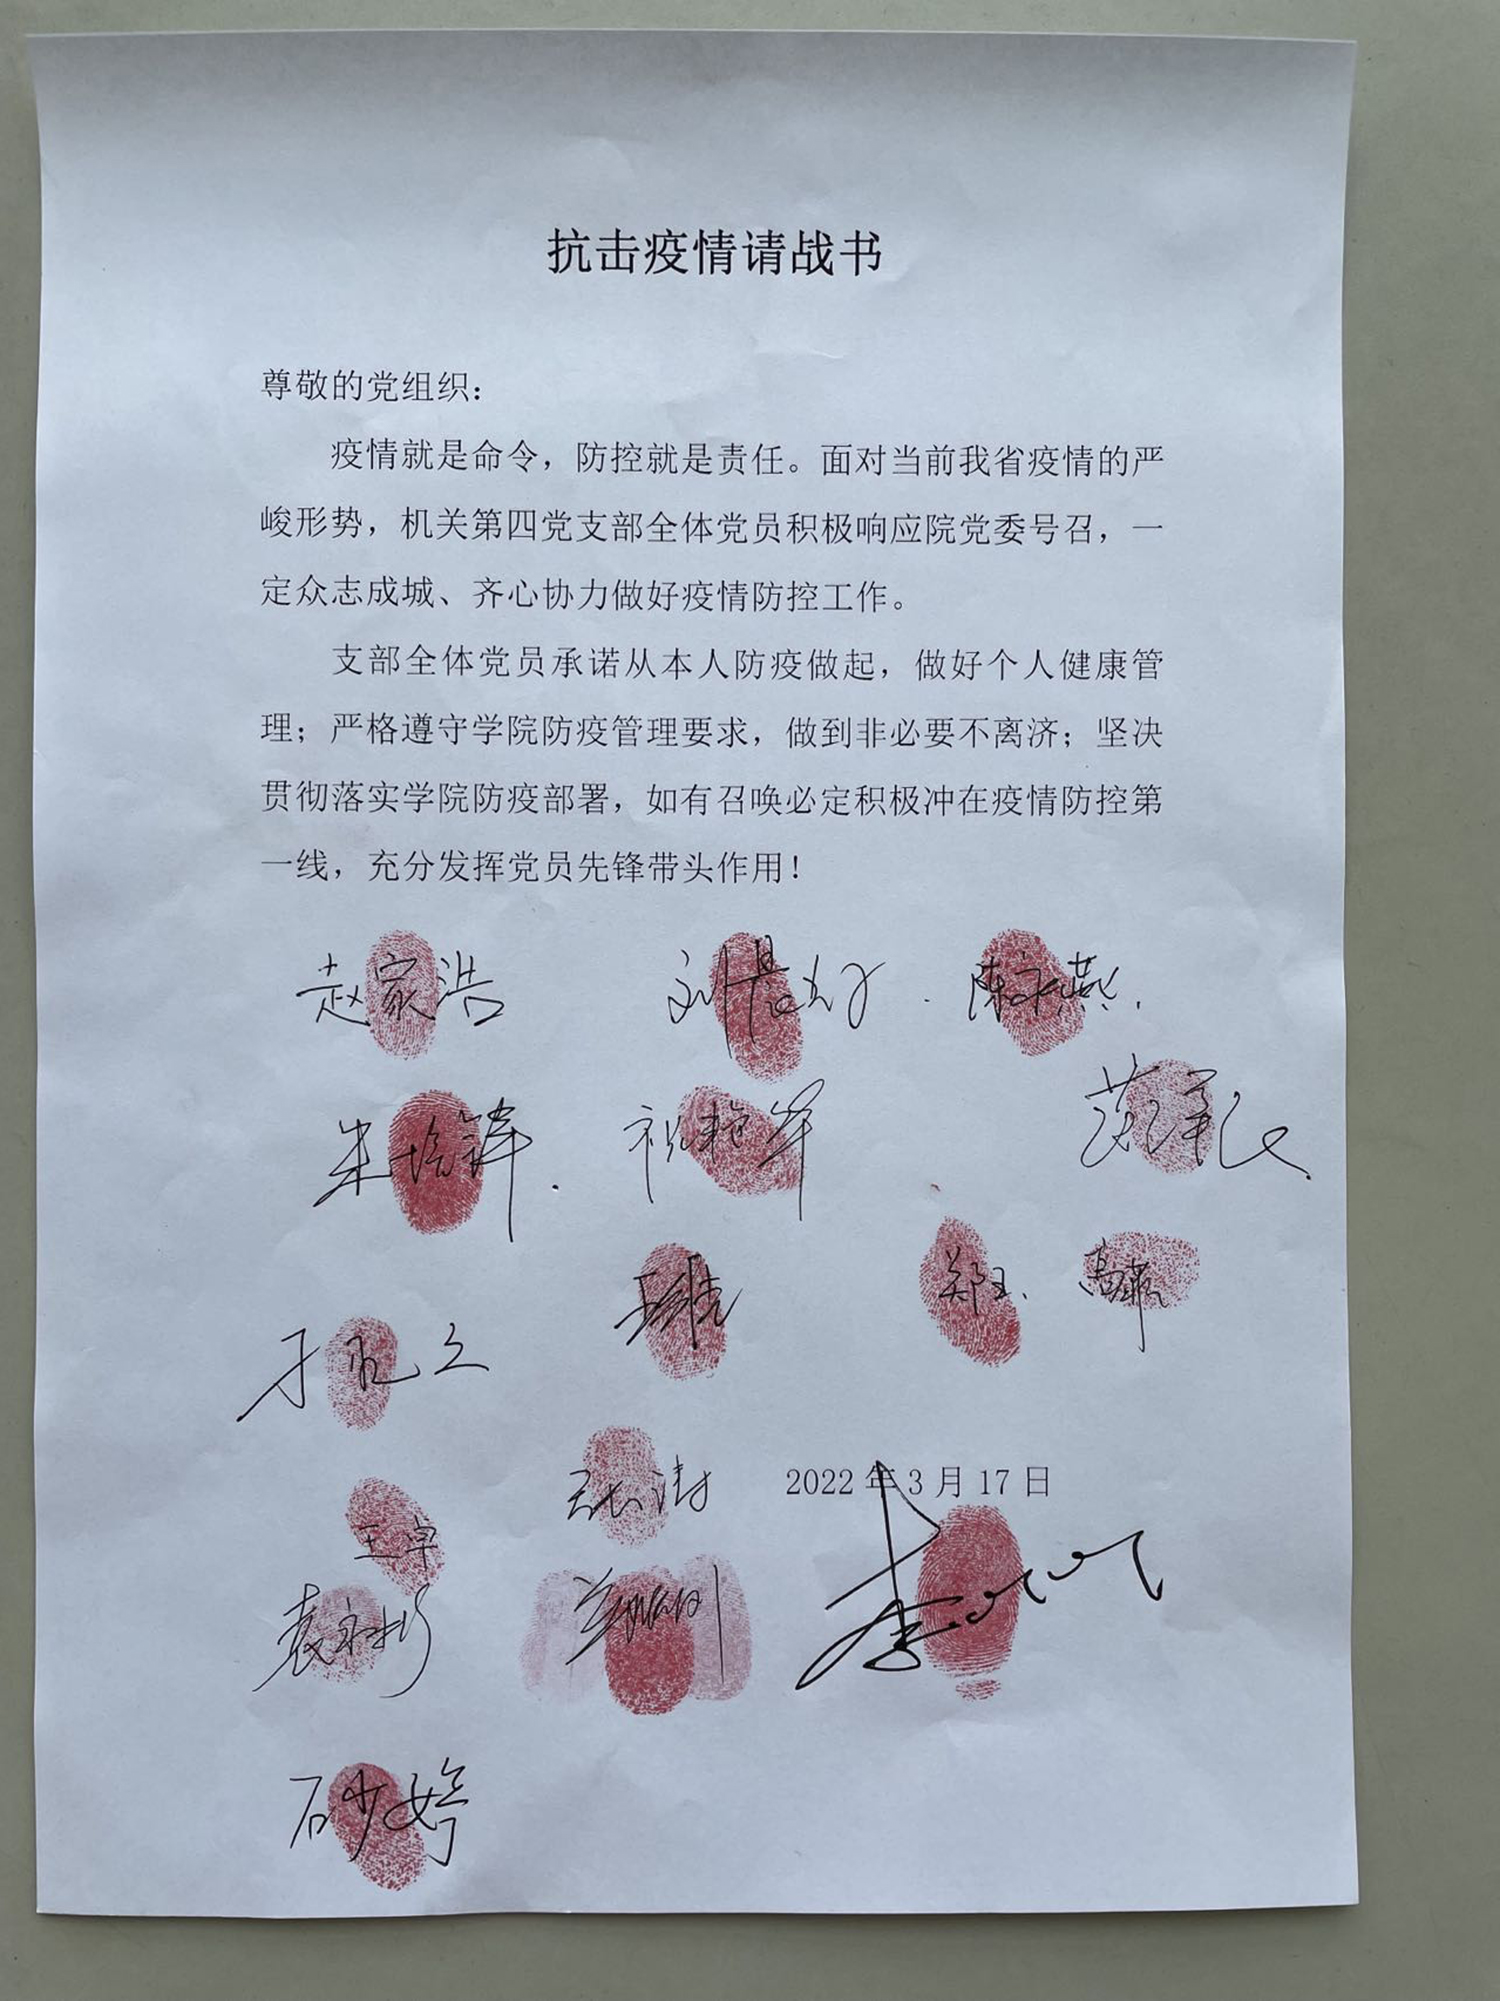 抗击疫情请战书
尊敬的党组织：
疫情就是命令，防控就是责任。面对当前我省疫情的严
峻形势，机关第四党支部全体党员积极响应院党委号召，一
定众志成城、齐心协力做好疫情防控工作。
支部全体党员承诺从本人防疫做起，做好个人健康管
理；严格遵守学院防疫管理要求，做到非必要不离济；坚决
贯彻落实学院防疫部署，如有召唤必定积极冲在疫情防控第
一线，充分发挥党员先锋带头作用！
赵家浩
陈永燕
朱培锋
祝艳华
郑玉
2022年3月17日
王卓
袁永彬